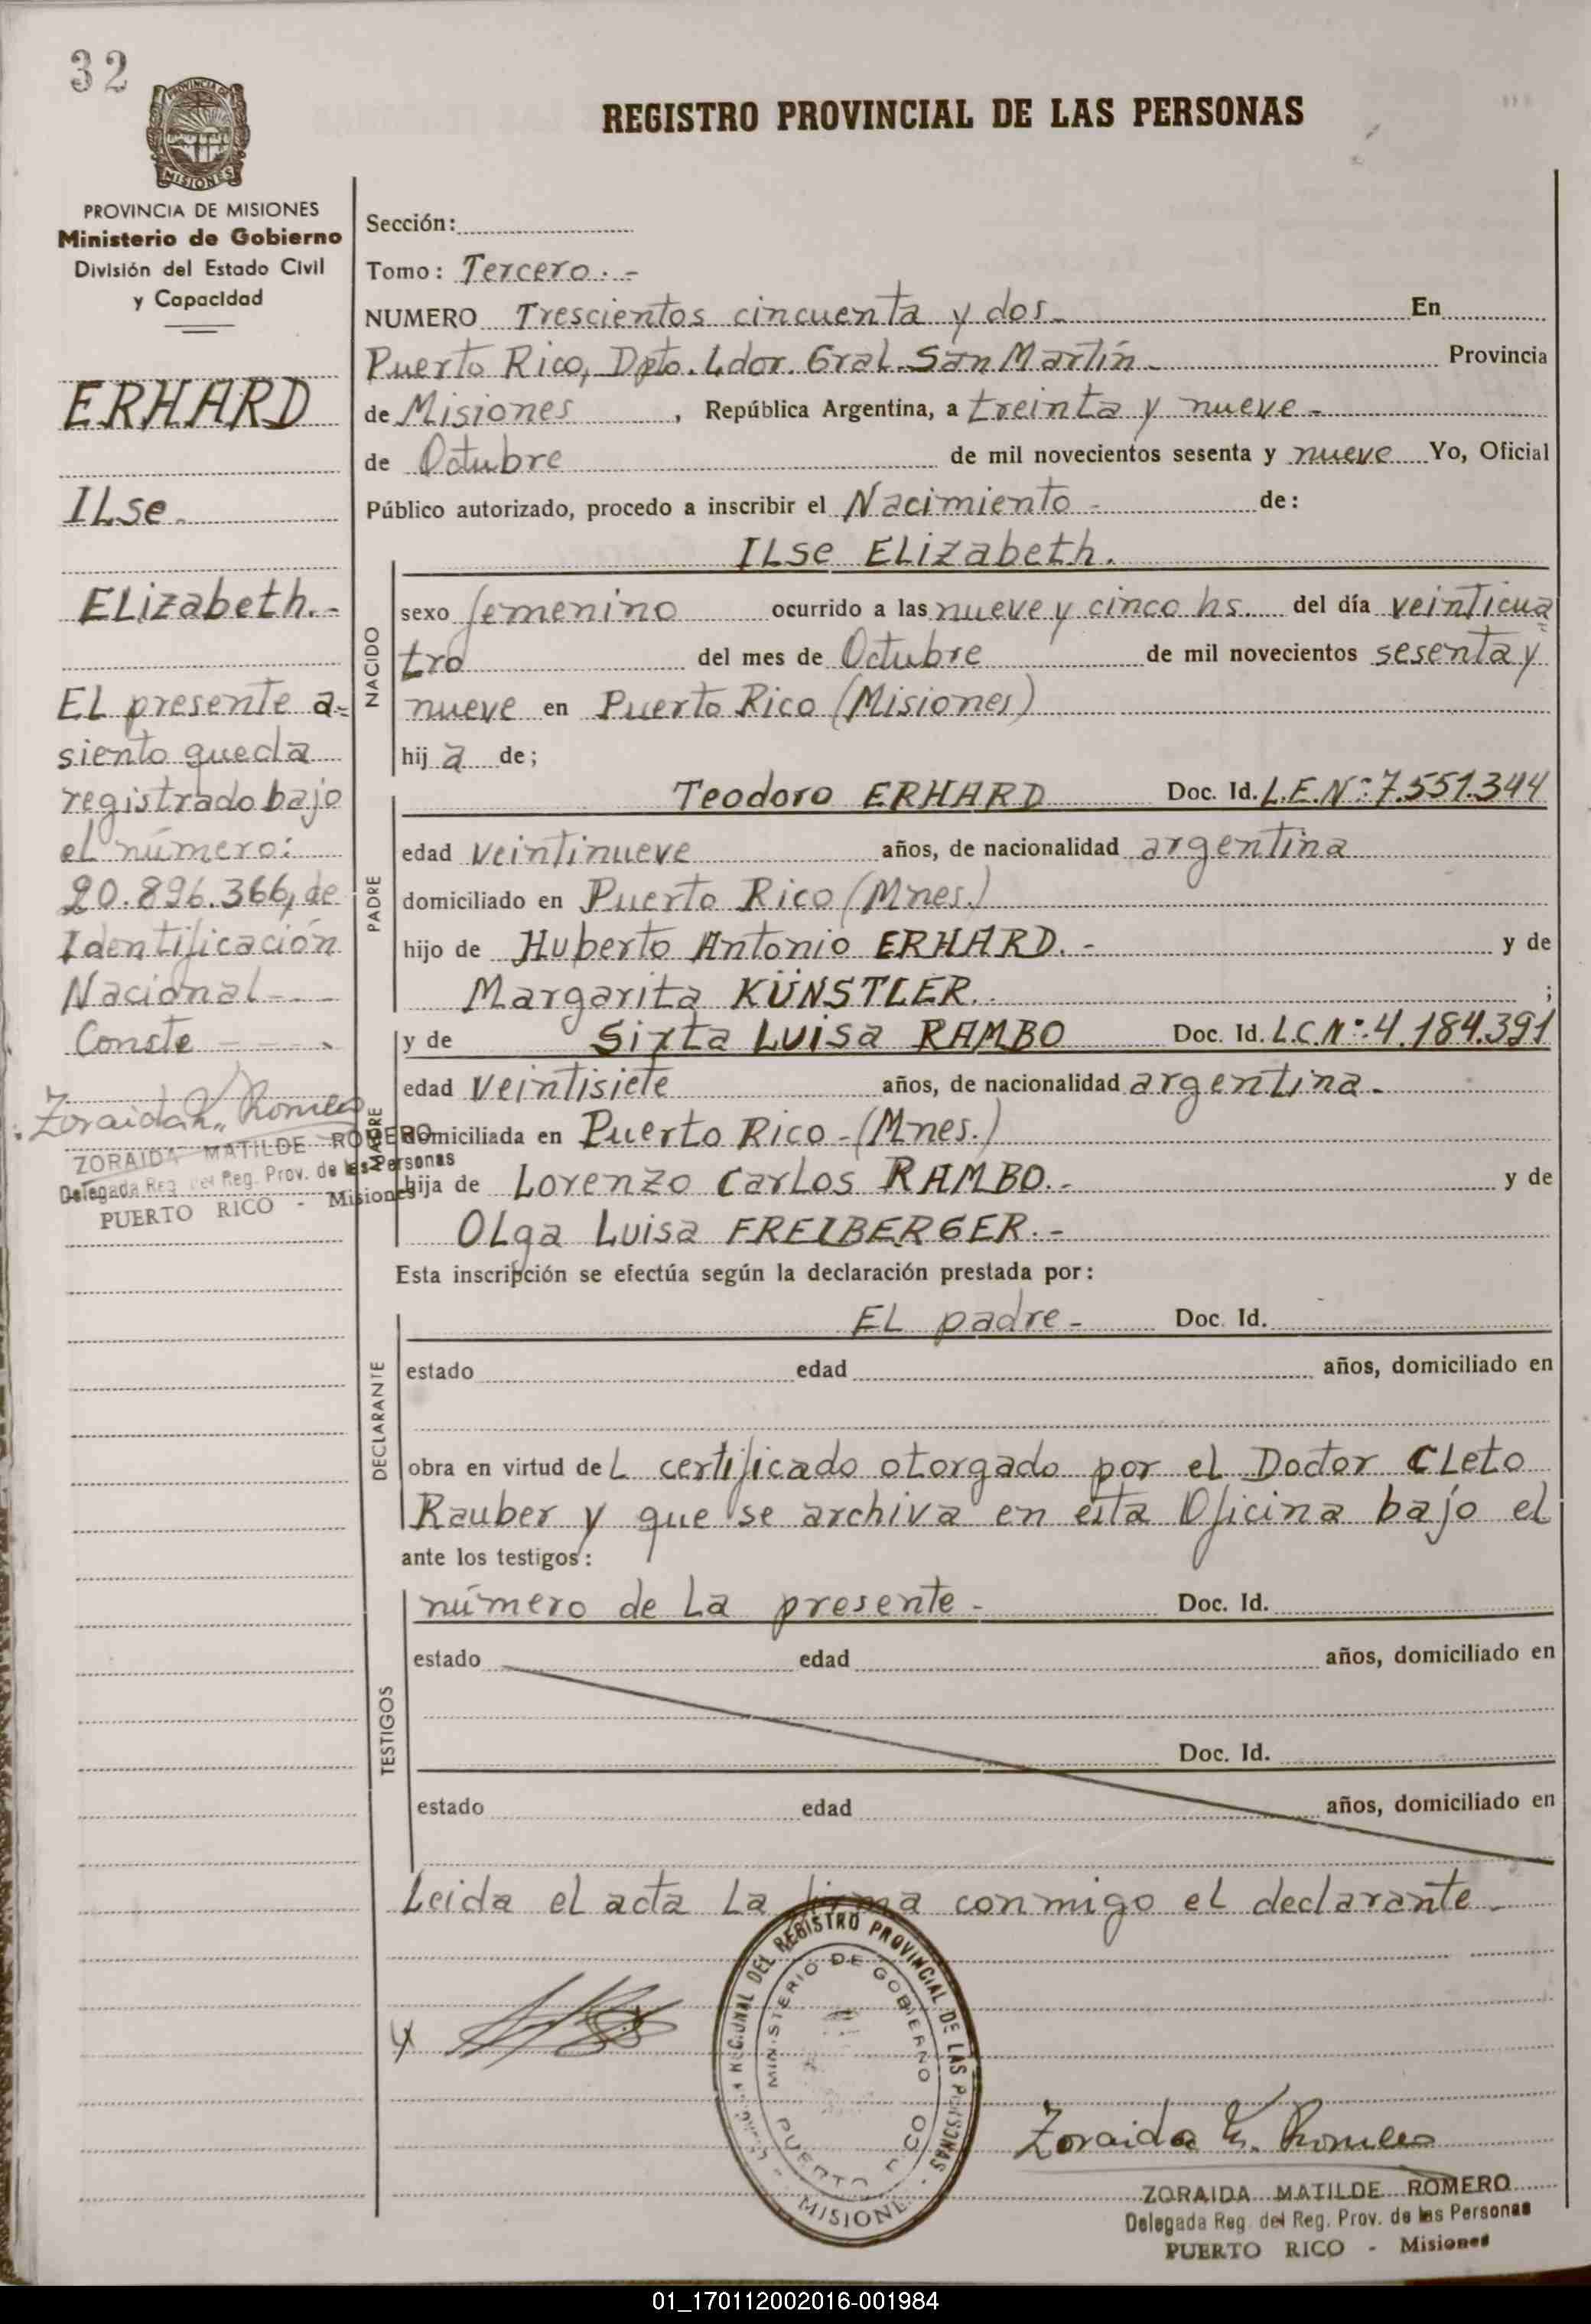 32
REGISTRO PROVINCIAL DE LAS PERSONAS
PROVINCIA DE MISIONES
Ministerio de Gobierno
División del Estado Civil
y Capacidad
ERHARD
Ilse.
Elizabeth.-
El presente a=
siento queda
registrado bajo
el número:
20.896.366, de
Identificación
Nacional
Conste
Zoraida M. Romero
ZORAIDA MATILDE ROMERO
Delegada Reg. del Reg. Prov. de las Personas
PUERTO RICO - Misiones
Sección:
Tomo: Tercero.-
NUMERO Trescientos cincuenta y dos.- En
Puerto Rico, Dpto. Ldor. Gral. San Martín.- Provincia
de Misiones, República Argentina, a treinta y nueve.-
de Octubre de mil novecientos sesenta y nueve Yo, Oficial
Público autorizado, procedo a inscribir el Nacimiento.- de:
Ilse Elizabeth.
NACIDO
sexo femenino ocurrido a las nueve y cinco hs. del día veinticua=
tro del mes de Octubre de mil novecientos sesenta y
nueve en Puerto Rico (Misiones)
hij a de;
PADRE
Teodoro ERHARD Doc. Id. L.E.Nº: 7.551.344
edad veintinueve años, de nacionalidad argentina
domiciliado en Puerto Rico (Mnes.)
hijo de Huberto Antonio ERHARD.- y de
Margarita KÜNSTLER. ;
MADRE
y de Sixta Luisa RAMBO Doc. Id. L.C.Nº: 4.184.391
edad veintisiete años, de nacionalidad argentina.-
domiciliada en Puerto Rico-(Mnes.)
hija de Lorenzo Carlos RAMBO.- y de
Olga Luisa FREIBERGER.-
Esta inscripción se efectúa según la declaración prestada por:
DECLARANTE
El padre- Doc. Id.
estado edad años, domiciliado en
obra en virtud del certificado otorgado por el Doctor Cleto
Rauber y que se archiva en esta Oficina bajo el
ante los testigos:
TESTIGOS
número de la presente- Doc. Id.
estado edad años, domiciliado en
Doc. Id.
estado edad años, domiciliado en
Leida el acta la firma conmigo el declarante.-
REGIONAL DEL REGISTRO PROVINCIAL DE LAS PERSONAS
MINISTERIO DE GOBIERNO
PUERTO RICO
MISIONES
Zoraida M. Romero
ZORAIDA MATILDE ROMERO
Delegada Reg. del Reg. Prov. de las Personas
PUERTO RICO - Misiones
01_170112002016-001984